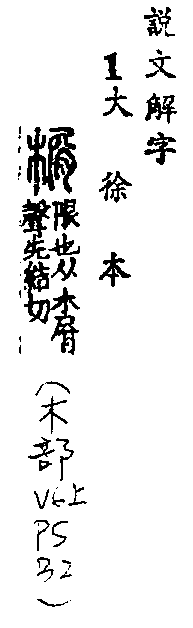 說文解字
1大徐本
榍
限也从木屑
聲先結切
(木部V6上P5B2)